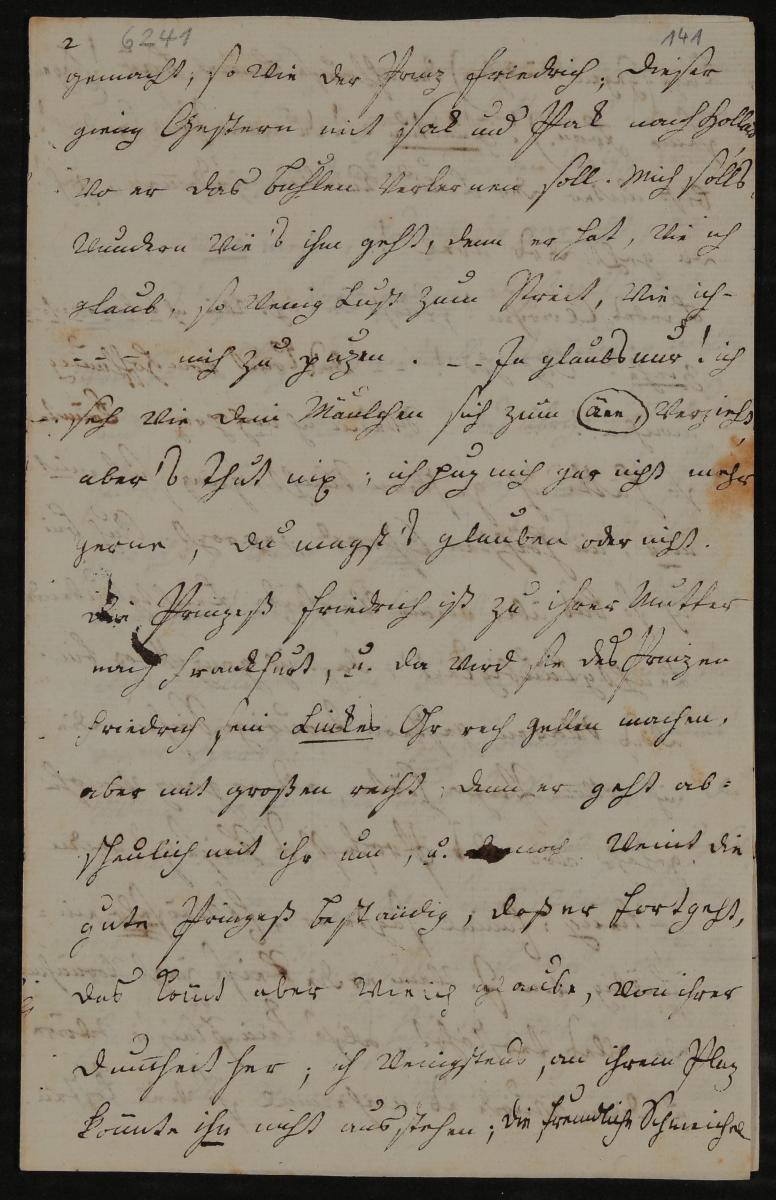 2 6241 141
gemacht, so wie der Prinz Friedrich; dieser
gieng Gestern mit sak und Pak nach Holland
wo er das buhlen verlernen soll. Mich solls
wundern wie's ihm geht, denn er hat, wie ich
glaub, so wenig Lust zum Streit, wie ich-
- - - mich zu puzen. - - Ja glaubs nur! ich
seh wie dein Mäulchen sich zum äee, verzieht
aber's Thut nix; ich puz mich gar nicht mehr
gerne, du magst's glauben oder nicht.
die Prinzeß Friedrich ist zu ihrer Mutter
nach Frankfurt, u. da wird sie des Prinzen
Friedrich sein Linkes Ohr rech gellen machen,
aber mit großen recht, denn er geht ab=
scheulich mit ihr um, u. dennoch weint die
gute Prinzeß beständig, daß er fortgeht,
das komt aber wie ich glaube, von ihrer
Dummheit her; ich wenigstens, an ihrem Plaz
könnte ihn nicht ausstehen; die freundliche Schmeichel